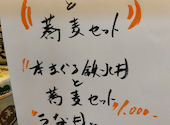 と
蕎麦セット
まぐろ鉄火丼
と
蕎麦セット ¥1,000-
うな丼